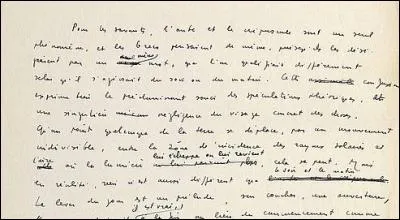 Pour les savants, l'aube et le crépuscule sont un seul
phénomène, et les Grecs pensaient de même, puisqu'ils les dési-
gnaient par un même mot, que l'on qualifiait différemment
selon qu'il s'agissait du soir ou du matin. Cette confusion
exprime bien le prédominant souci des spéculations théoriques, et
une singulière négligence du visage concret des choses.
Qu'un point quelconque de la terre se déplace, par un mouvement
indivisible, entre la zone d'incidence des rayons solaires et
celle où la lumière lui échappe ou lui revient, cela se peut. Mais
en réalité, rien n'est aussi différent que le soir et le matin.
Le lever du jour est un prélude, son coucher, une ouverture,
au lieu du commencement comme